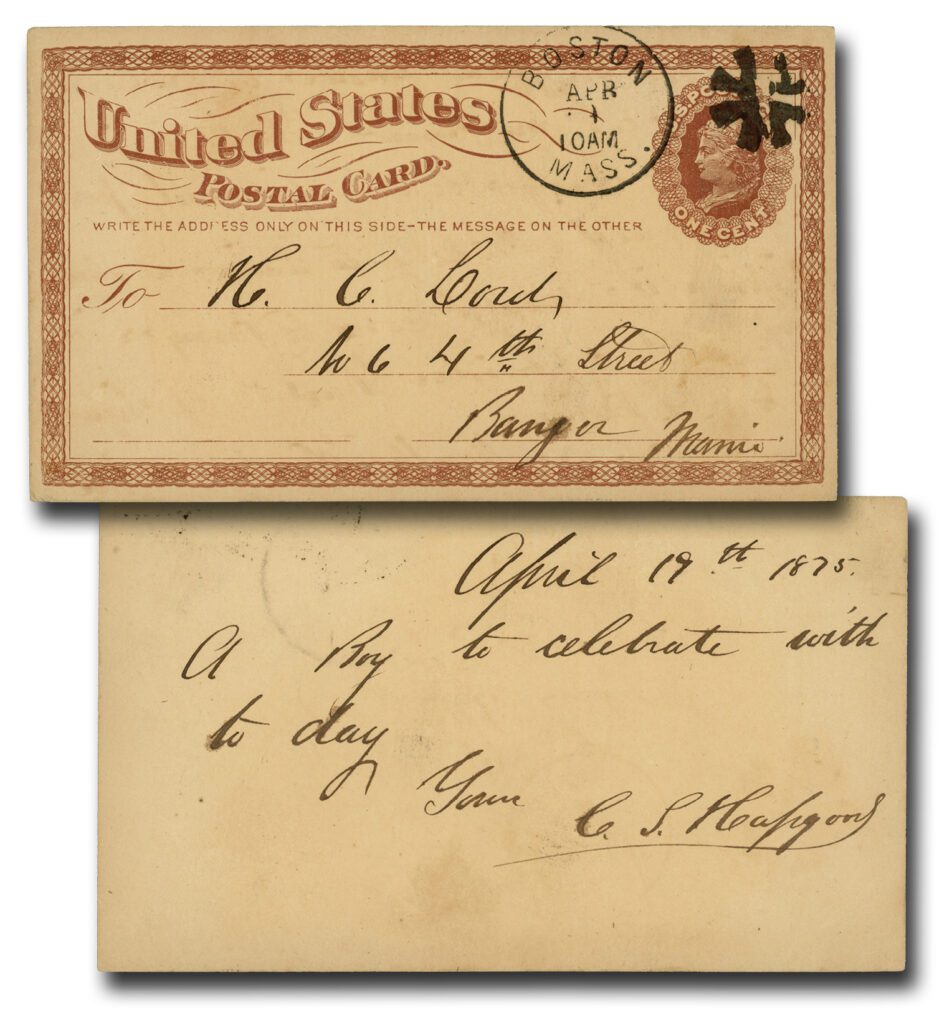 United States
POSTAL CARD.
WRITE THE ADDRESS ONLY ON THIS SIDE–THE MESSAGE ON THE OTHER
BOSTON
APR
1
10AM
MASS.
ONE CENT
To H. C. Lord,
No 6 4th Street
Bangor Maine
April 19th 1875.
A Boy to celebrate with
to day
Yours
C. S. Hapgood